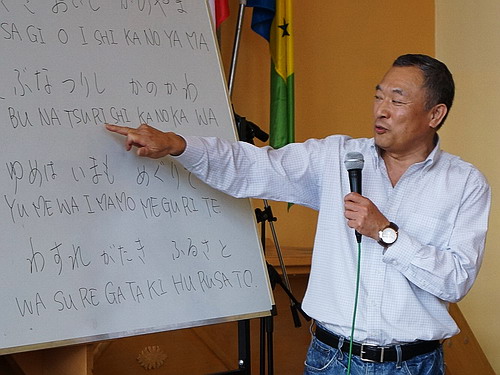 さぎ おいし かのやま
SAGI O I SHI KA NO YA MA
ぶな つりし かのかわ
BU NA TSURISHI KANOKA WA
ゆめは いまも めぐり
YU ME WA I MAMO ME GU RI TE
わすれ がたき ふるさと
WA SU RE GA TA KI HU RUSA TO